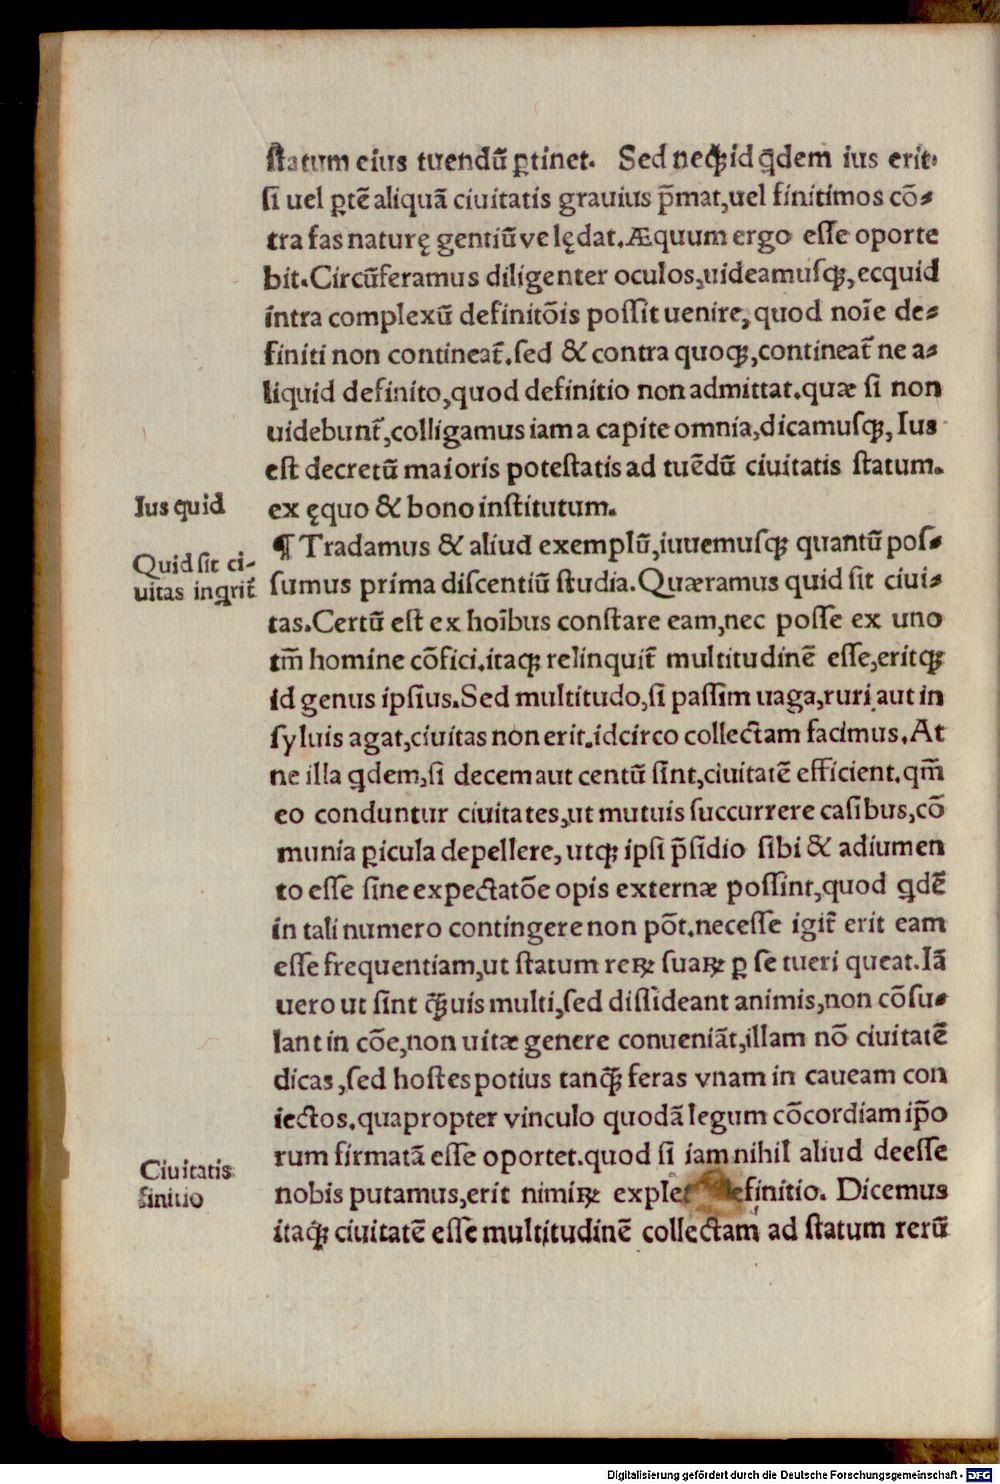 ſtatum eius tuendū ꝑtinet. Sed neqꝫ id q̄dem ius erit,
ſi uel ꝑtē aliquā ciuitatis grauius p̄mat, uel finitimos cō⸗
tra fas naturę gentiū ve lędat. Æquum ergo eſſe oporte
bit. Circūferamus diligenter oculos, uideamuſqꝫ, ecquid
intra complexū definitōis poſſit uenire, quod noīe de⸗
finiti non contineat̄. ſed & contra quoqꝫ, contineat̄ ne a⸗
liquid definito, quod definitio non admittat. quæ ſi non
uidebunt̄, colligamus iam a capite omnia, dicamuſqꝫ, Ius
eſt decretū maioris poteſtatis ad tuēdū ciuitatis ſtatum.
Ius quid
ex ęquo & bono inſtitutum.
¶ Tradamus & aliud exemplū, iuuemuſqꝫ quantū poſ⸗
Quid ſit ci-
uitas inq̄rit̄
ſumus prima diſcentiū ſtudia. Quæramus quid ſit ciui⸗
tas. Certū eſt ex hoībus conſtare eam, nec poſſe ex uno
tm̄ homine cōfici. itaqꝫ relinquit̄ multitudinē eſſe, eritqꝫ
id genus ipſius. Sed multitudo, ſi paſſim uaga, ruri aut in
ſyluis agat, ciuitas non erit. idcirco collectam facimus. At
ne illa q̄dem, ſi decem aut centū ſint, ciuitatē efficient. qm̄
eo conduntur ciuitates, ut mutuis ſuccurrere caſibus, cō
munia ꝑicula depellere, utqꝫ ipſi p̄ſidio ſibi & adiumen
to eſſe ſine expectatōe opis externæ poſſint, quod q̄dē
in tali numero contingere non pōt. neceſſe igit̄ erit eam
eſſe frequentiam, ut ſtatum reꝝ ſuaꝝ ꝑ ſe tueri queat. Iā
uero ut ſint q̄ꝫuis multi, ſed diſſideant animis, non cōſu⸗
lant in cōe, non uitæ genere conueniāt, illam nō ciuitatē
dicas, ſed hoſtes potius tanq̄ꝫ feras vnam in caueam con
iectos. quapropter vinculo quodā legum cōcordiam ip̄o
rum firmatā eſſe oportet. quod ſi iam nihil aliud deeſſe
Ciuitatis
finitio
nobis putamus, erit nimiꝝ explet definitio. Dicemus
itaqꝫ ciuitatē eſſe multitudinē collectam ad ſtatum rerū
Digitalisierung gefördert durch die Deutsche Forschungsgemeinschaft - DFG